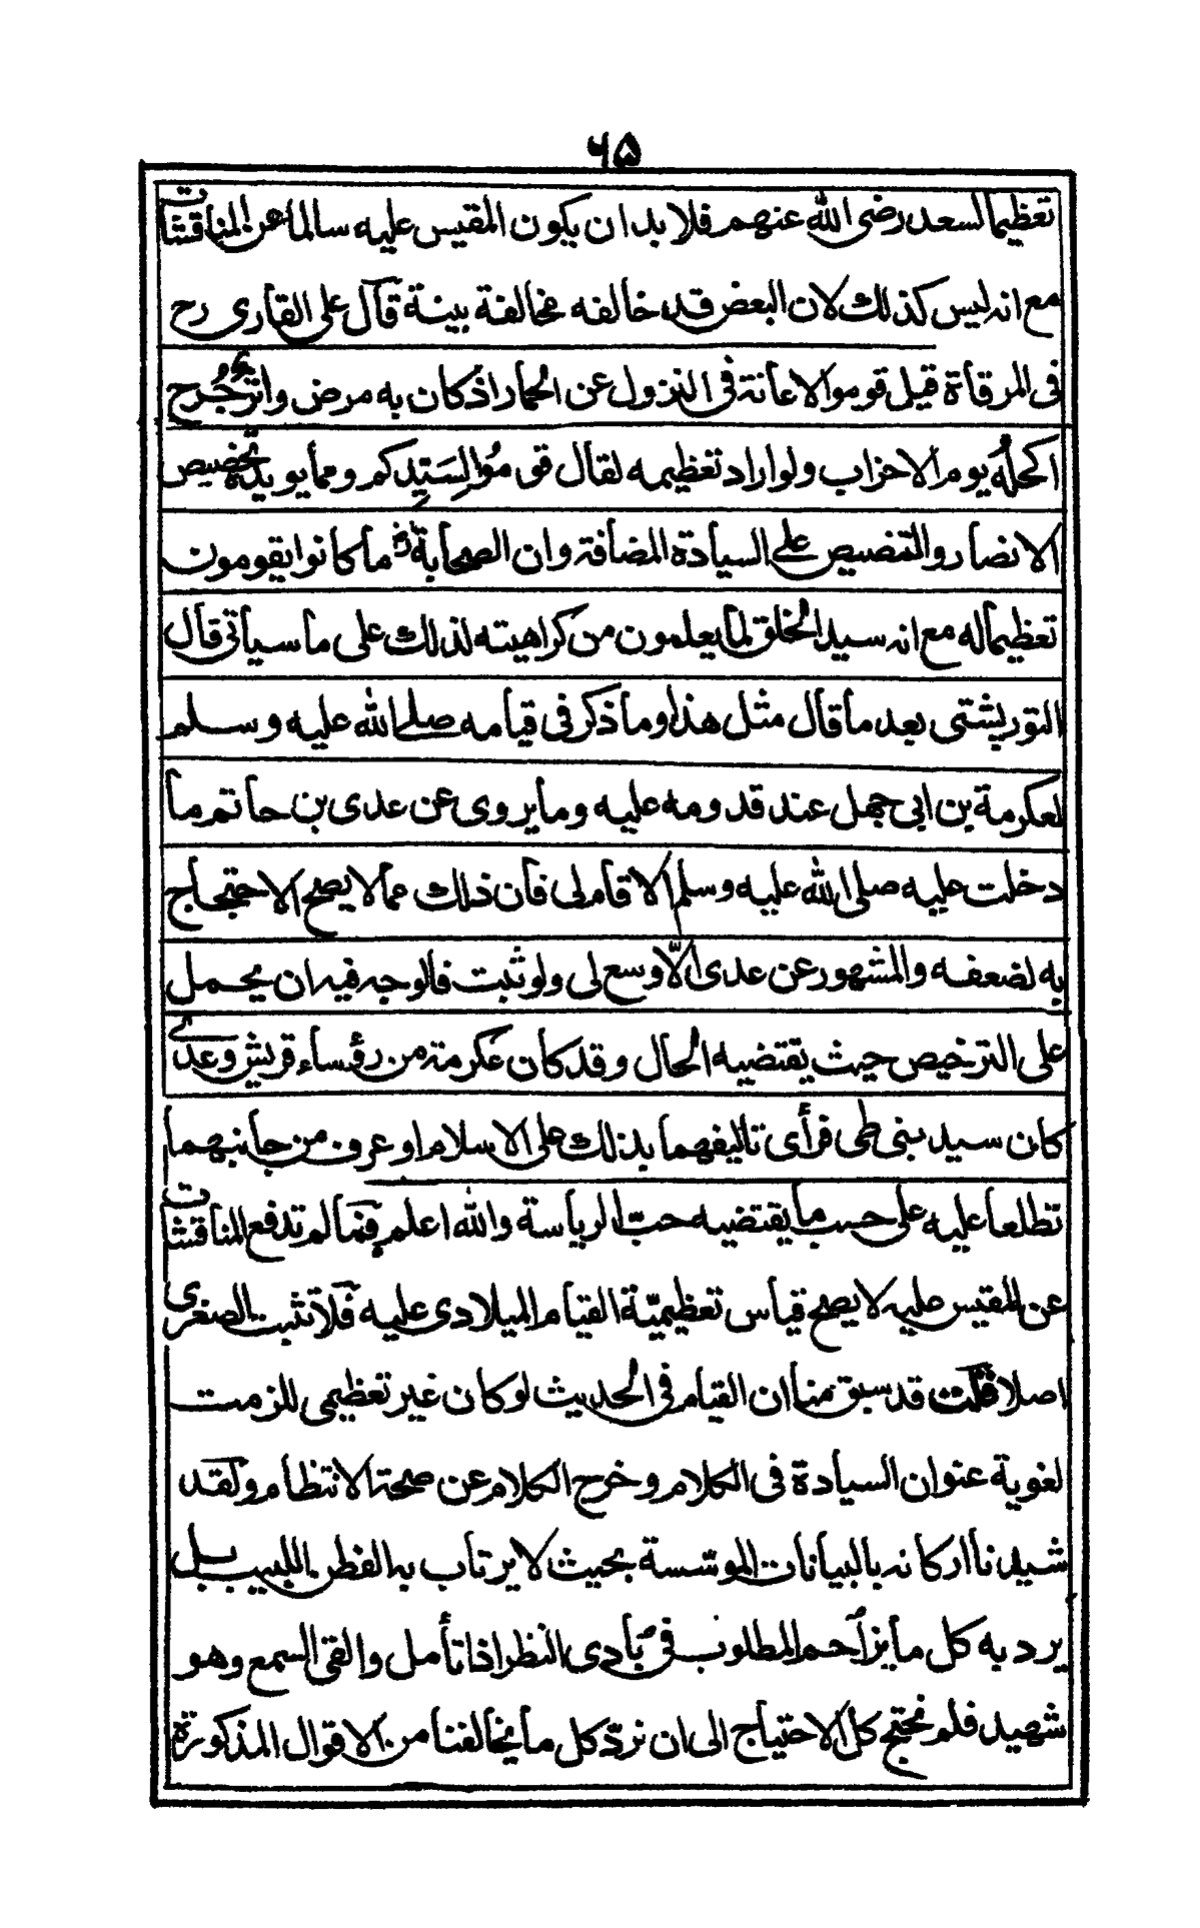 ۶۵
تعظیما لسعد رضی الله عنهم فلا بد ان یکون المقیس علیه سالما عن المناقشات
مع انه لیس کذلك لان البعض قد خالفه مخالفة بینة قال علی القاری رح
فی المرقاة قیل قوموا لاعانته فی النزول عن الحمار اذ کان به مرض واثر جُرح
اکحله یوم الاحزاب ولو اراد تعظیمه لقال قوموا لِسَیّدِکم ومما یویده تخصیص
الانصار والتنصیص علی السیادة المضافة وان الصحابة رض ما کانوا یقومون
تعظیما له مع انه سید الخلق لما یعلمون من کراهیته لذلك علی ما سیأتی قال
التوربشتی بعد ما قال مثل هذا وما ذکر فی قیامه صلے الله علیه وسلم
لعکرمة بن ابی جهل عند قدومه علیه وما یروی عن عدی بن حاتم ما
دخلت علیه صلی الله علیه وسلم الا قام لی فان ذلك مما لا یصح الاحتجاج
به لضعفه والمشهور عن عدی الّا وسع لی ولو ثبت فالوجه فیه ان یحمل
علی الترخیص حیث یقتضیه الحال وقد کان عکرمة من رؤساء قریش وعدی
کان سید بنی طی فرأی تالیفهما بذلك علی الاسلام او عرف من جانبهما
تطلعا علیه علی حسب ما یقتضیه حبّ الریاسة والله اعلم فما لم تدفع المناقشات
عن المقیس علیه لا یصح قیاس تعظیمیّة القیام المیلادی علیه فلا تثبت الصغری
اصلا قلت قد سبق منا ان القیام فی الحدیث لو کان غیر تعظیمی للزمت
لغویة عنوان السیادة فی الکلام وخرج الکلام عن صحة الانتظام ولقد
شیدنا ارکانه بالبیانات الموسّسة بحیث لا یرتاب به الفطن اللبیب بل
یرد به کل ما یزاحم المطلوب فی بادی النظر اذا تأمل والقی السمع وهو
شهید فلم نحتج کل الاحتیاج الی ان نردّ کل ما یخالفنا من الاقوال المذکورة